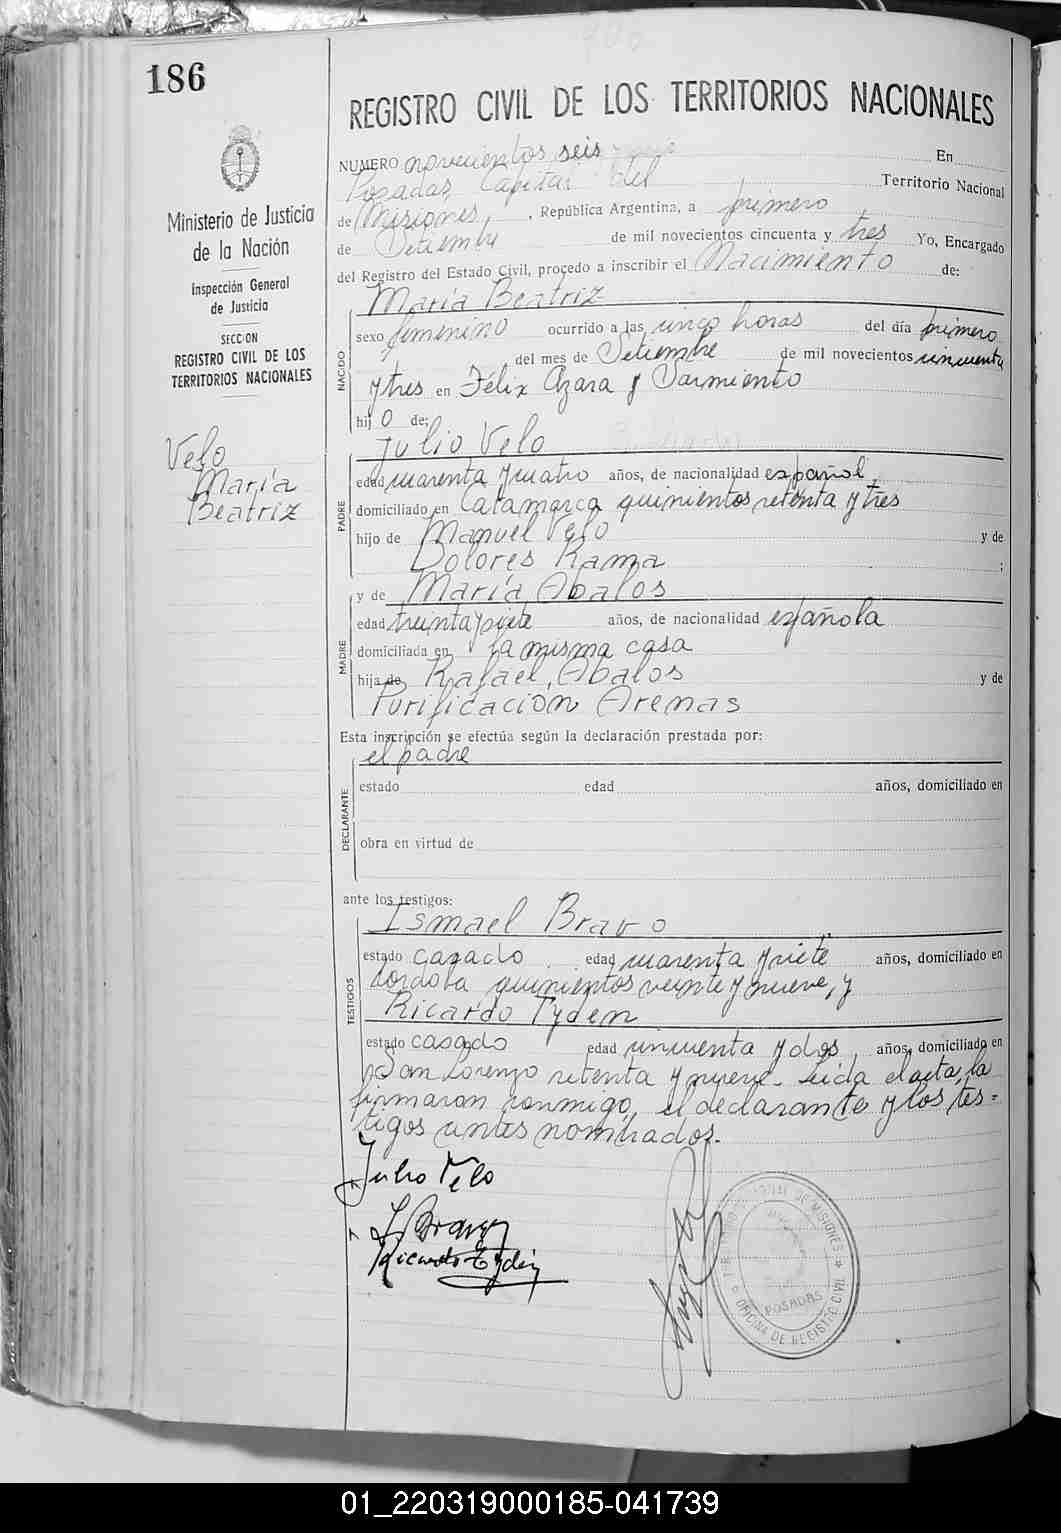 186
REGISTRO CIVIL DE LOS TERRITORIOS NACIONALES
Ministerio de Justicia
de la Nación
Inspección General
de Justicia
SECCION
REGISTRO CIVIL DE LOS
TERRITORIOS NACIONALES
Velo
María
Beatriz
NUMERO novecientos seis En
Posadas, Capital del Territorio Nacional
de Misiones, , República Argentina, a primero
de Setiembre de mil novecientos cincuenta y tres Yo, Encargado
del Registro del Estado Civil, procedo a inscribir el Nacimiento de:
María Beatriz
NACIDO
sexo femenino ocurrido a las cinco horas del día primero
del mes de Setiembre de mil novecientos cincuenta
y tres en Félix Azara y Sarmiento
hij O de;
Julio Velo
PADRE
edad cuarenta y cuatro años, de nacionalidad español
domiciliado en Catamarca quinientos setenta y tres
hijo de Manuel Velo y de
Dolores Rama ;
y de María Abalos
MADRE
edad treinta y siete años, de nacionalidad española
domiciliada en la misma casa
hija de Rafael Abalos y de
Purificación Arenas
Esta inscripción se efectúa según la declaración prestada por:
el padre
DECLARANTE
estado edad años, domiciliado en
obra en virtud de
ante los testigos:
Ismael Bravo
TESTIGOS
estado casado edad cuarenta y siete años, domiciliado en
Córdoba quinientos veinte y nueve, y
Ricardo Tyden
estado casado edad cincuenta y dos, años, domiciliado en
San Lorenzo setenta y nueve. Leída el acta, la
firmaron conmigo, el declarante y los tes=
tigos antes nombrados.-
Julio Velo
I Bravo
Ricardo Tyden
OFICINA DE REGISTRO CIVIL
POSADAS
01_220319000185-041739